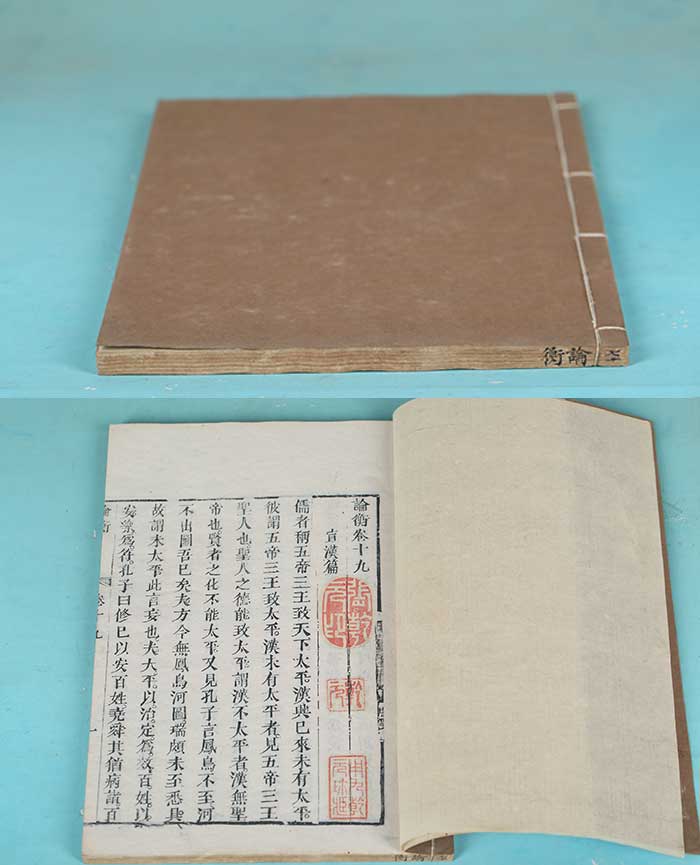 論衡
論衡卷十九
宣漢篇
儒者稱五帝三王致天下太平漢興已來未有太平
彼謂五帝三王致太平漢未有太平者見五帝三王
聖人也聖人之德能致太平謂漢不太平者漢無聖
帝也賢者之化不能太平又見孔子言鳳鳥不至河
不出圖吾已矣夫方今無鳳鳥河圖瑞頗未至悉具
故謂未太平此言妄也夫大平以治定爲效百姓以
安樂爲符孔子曰修已以安百姓堯舜其猶病諸百
論衡
卷十九
一
論衡